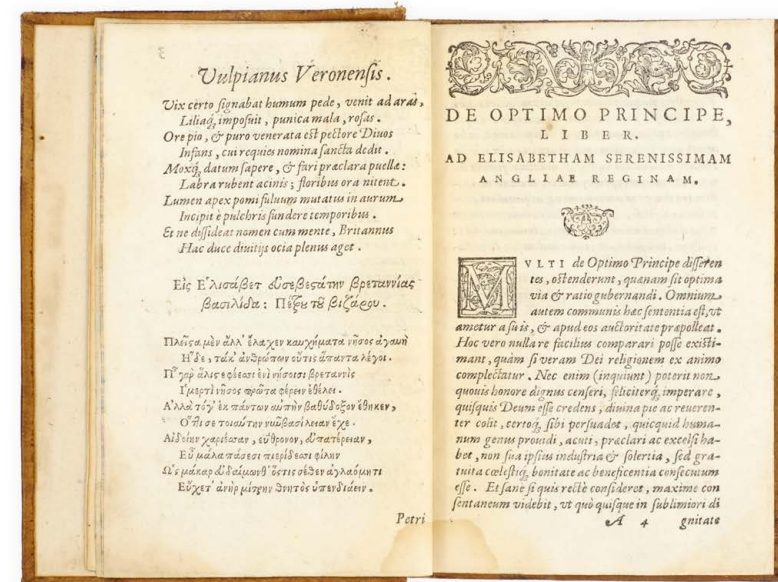 3
Vulpianus Veronensis.
Vix certo signabat humum pede, venit ad aras,
Liliaq́, imposuit, punica mala, rosas.
Ore pio, & puro venerata est pectore Diuos
Infans, cui requies nomina sancta dedit.
Moxq́, datum sapere, & fari praeclara puellae:
Labra rubent acinis; floribus ora nitent.
Lumen apex pomi fuluum mutatus in aurum
Incipit è pulchris fundere temporibus.
Et ne dissideat nomen cum mente, Britannus
Hac duce diuitijs ocia plenus aget.
Εἰς Ἐλισάβετ εὐσεβεστάτην βρεταννίας
βασιλίδα: Πέτρου τοῦ βιζάρου.
Πλεῖστα μὲν ἄλλ' ἔλαχεν καυχήματα νῆσος ἀγαυὴ
Ἥδε, τάκ' ἀνθρώπων οὔτις ἅπαντα λέγοι.
γὰρ ἅλις βρεταννὶς
νῆσος πρῶτα φέρειν ἐθέλει.
Ἀλλὰ τόγ' ἐκ πάντων αὐτὴν βαθύδοξον ἔθηκεν,
τοιαύτην νῦν βασίλειαν ἔχε.
Αἰδοίην χαρίεσσαν, εὔθρονον, εὐπατέρειαν,
Εὖ μάλα πάσεσι πιερίδεσσι φίλην
Ὡς μάκαρ εὐδαίμονθ' ὅστις σέθεν ἀγλαόμητι
Εὔχετ' ἀνὴρ θνητὸς
Petri
DE OPTIMO PRINCIPE,
LIBER.
AD ELISABETHAM SERENISSIMAM
ANGLIAE REGINAM.
MVLTI de Optimo Principe disseren
tes, ostenderunt, quanam sit optima
via & ratio gubernandi. Omnium
autem communis haec sententia est, vt
ametur a suis, & apud eos auctoritate praepolleat.
Hoc vero nulla re facilius comparari posse existi-
mant, quàm si veram Dei religionem ex animo
complectatur. Nec enim (inquiunt) poterit non
quouis honore dignus censeri, feliciterq́, imperare,
quisquis Deum esse credens, diuina pie ac reueren-
ter colit, certoq́, sibi persuadet, quicquid huma-
num genus prouidi, acuti, praeclari ac excelsi ha-
bet, non sua ipsius industria & solertia, sed gra-
tuita coelestiq́, bonitate ac beneficentia consecutum
esse. Et sane si quis rectè consideret, maxime con
sentaneum videbit, vt quò quisque in sublimiori di
A 4 gnitate